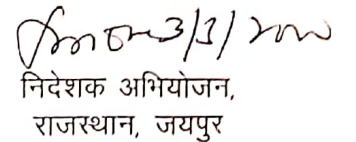 3/3/
निदेशक अभियोजन,
राजस्थान, जयपुर